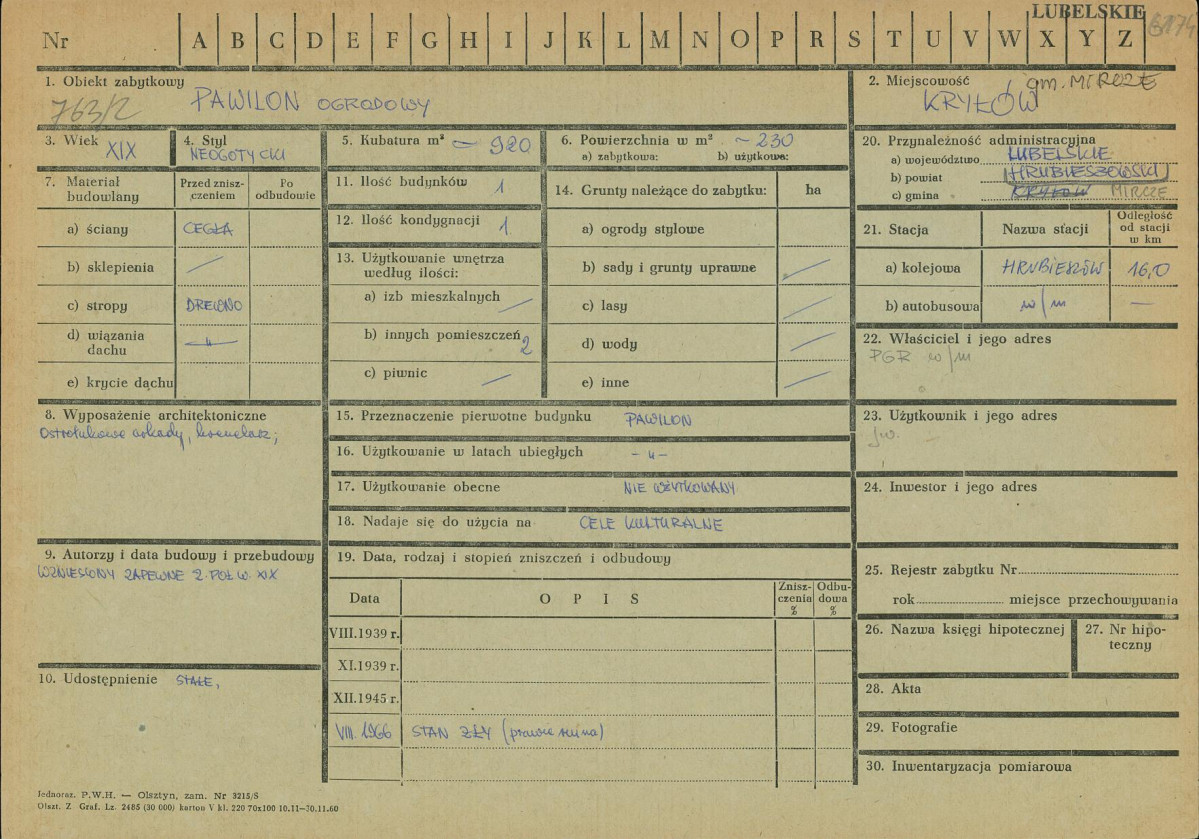 LUBELSKIE
Nr A B C D E F G H I J K L M N O P R S T U V W X Y Z
1. Obiekt zabytkowy
763/2 PAWILON OGRODOWY
2. Miejscowość gm. MIRCZE
KRYŁÓW
3. Wiek XIX
4. Styl
NEOGOTYCKI
5. Kubatura m³ ~ 920
6. Powierzchnia w m² ~ 230
a) zabytkowa: b) użytkowa:
7. Materiał budowlany
Przed zniszczeniem
Po odbudowie
a) ściany CEGŁA
b) sklepienia /
c) stropy DREWNO
d) wiązania dachu -"-
e) krycie dachu
8. Wyposażenie architektoniczne
Ostrołukowe arkady, krenelaż;
9. Autorzy i data budowy i przebudowy
WZNIESIONY ZAPEWNE 2. POŁ W. XIX
10. Udostępnienie STAŁE,
11. Ilość budynków 1
12. Ilość kondygnacji 1
13. Użytkowanie wnętrza według ilości:
a) izb mieszkalnych /
b) innych pomieszczeń 2
c) piwnic /
14. Grunty należące do zabytku: ha
a) ogrody stylowe
b) sady i grunty uprawne /
c) lasy /
d) wody /
e) inne /
15. Przeznaczenie pierwotne budynku PAWILON
16. Użytkowanie w latach ubiegłych -"-
17. Użytkowanie obecne NIE UŻYTKOWANY
18. Nadaje się do użycia na CELE KULTURALNE
19. Data, rodzaj i stopień zniszczeń i odbudowy
Data OPIS Zniszczenia % Odbudowa %
VIII.1939 r.
XI.1939 r.
XII.1945 r.
VIII. 1966 STAN ZŁY (prawie ruina)
20. Przynależność administracyjna
a) województwo LUBELSKIE
b) powiat HRUBIESZOWSKI
c) gmina KRYŁÓW MIRCZE
21. Stacja Nazwa stacji Odległość od stacji w km
a) kolejowa HRUBIESZÓW 16,0
b) autobusowa w/m —
22. Właściciel i jego adres
PGR w/m
23. Użytkownik i jego adres
jw. —
24. Inwestor i jego adres
25. Rejestr zabytku Nr
rok miejsce przechowywania
26. Nazwa księgi hipotecznej
27. Nr hipoteczny
28. Akta
29. Fotografie
30. Inwentaryzacja pomiarowa
Jednoraz. P.W.H. — Olsztyn, zam. Nr 3215/S
Olszt. Z. Graf. Lz. 2485 (30 000) karton V kl. 220 70x100 10.11—30.11.60